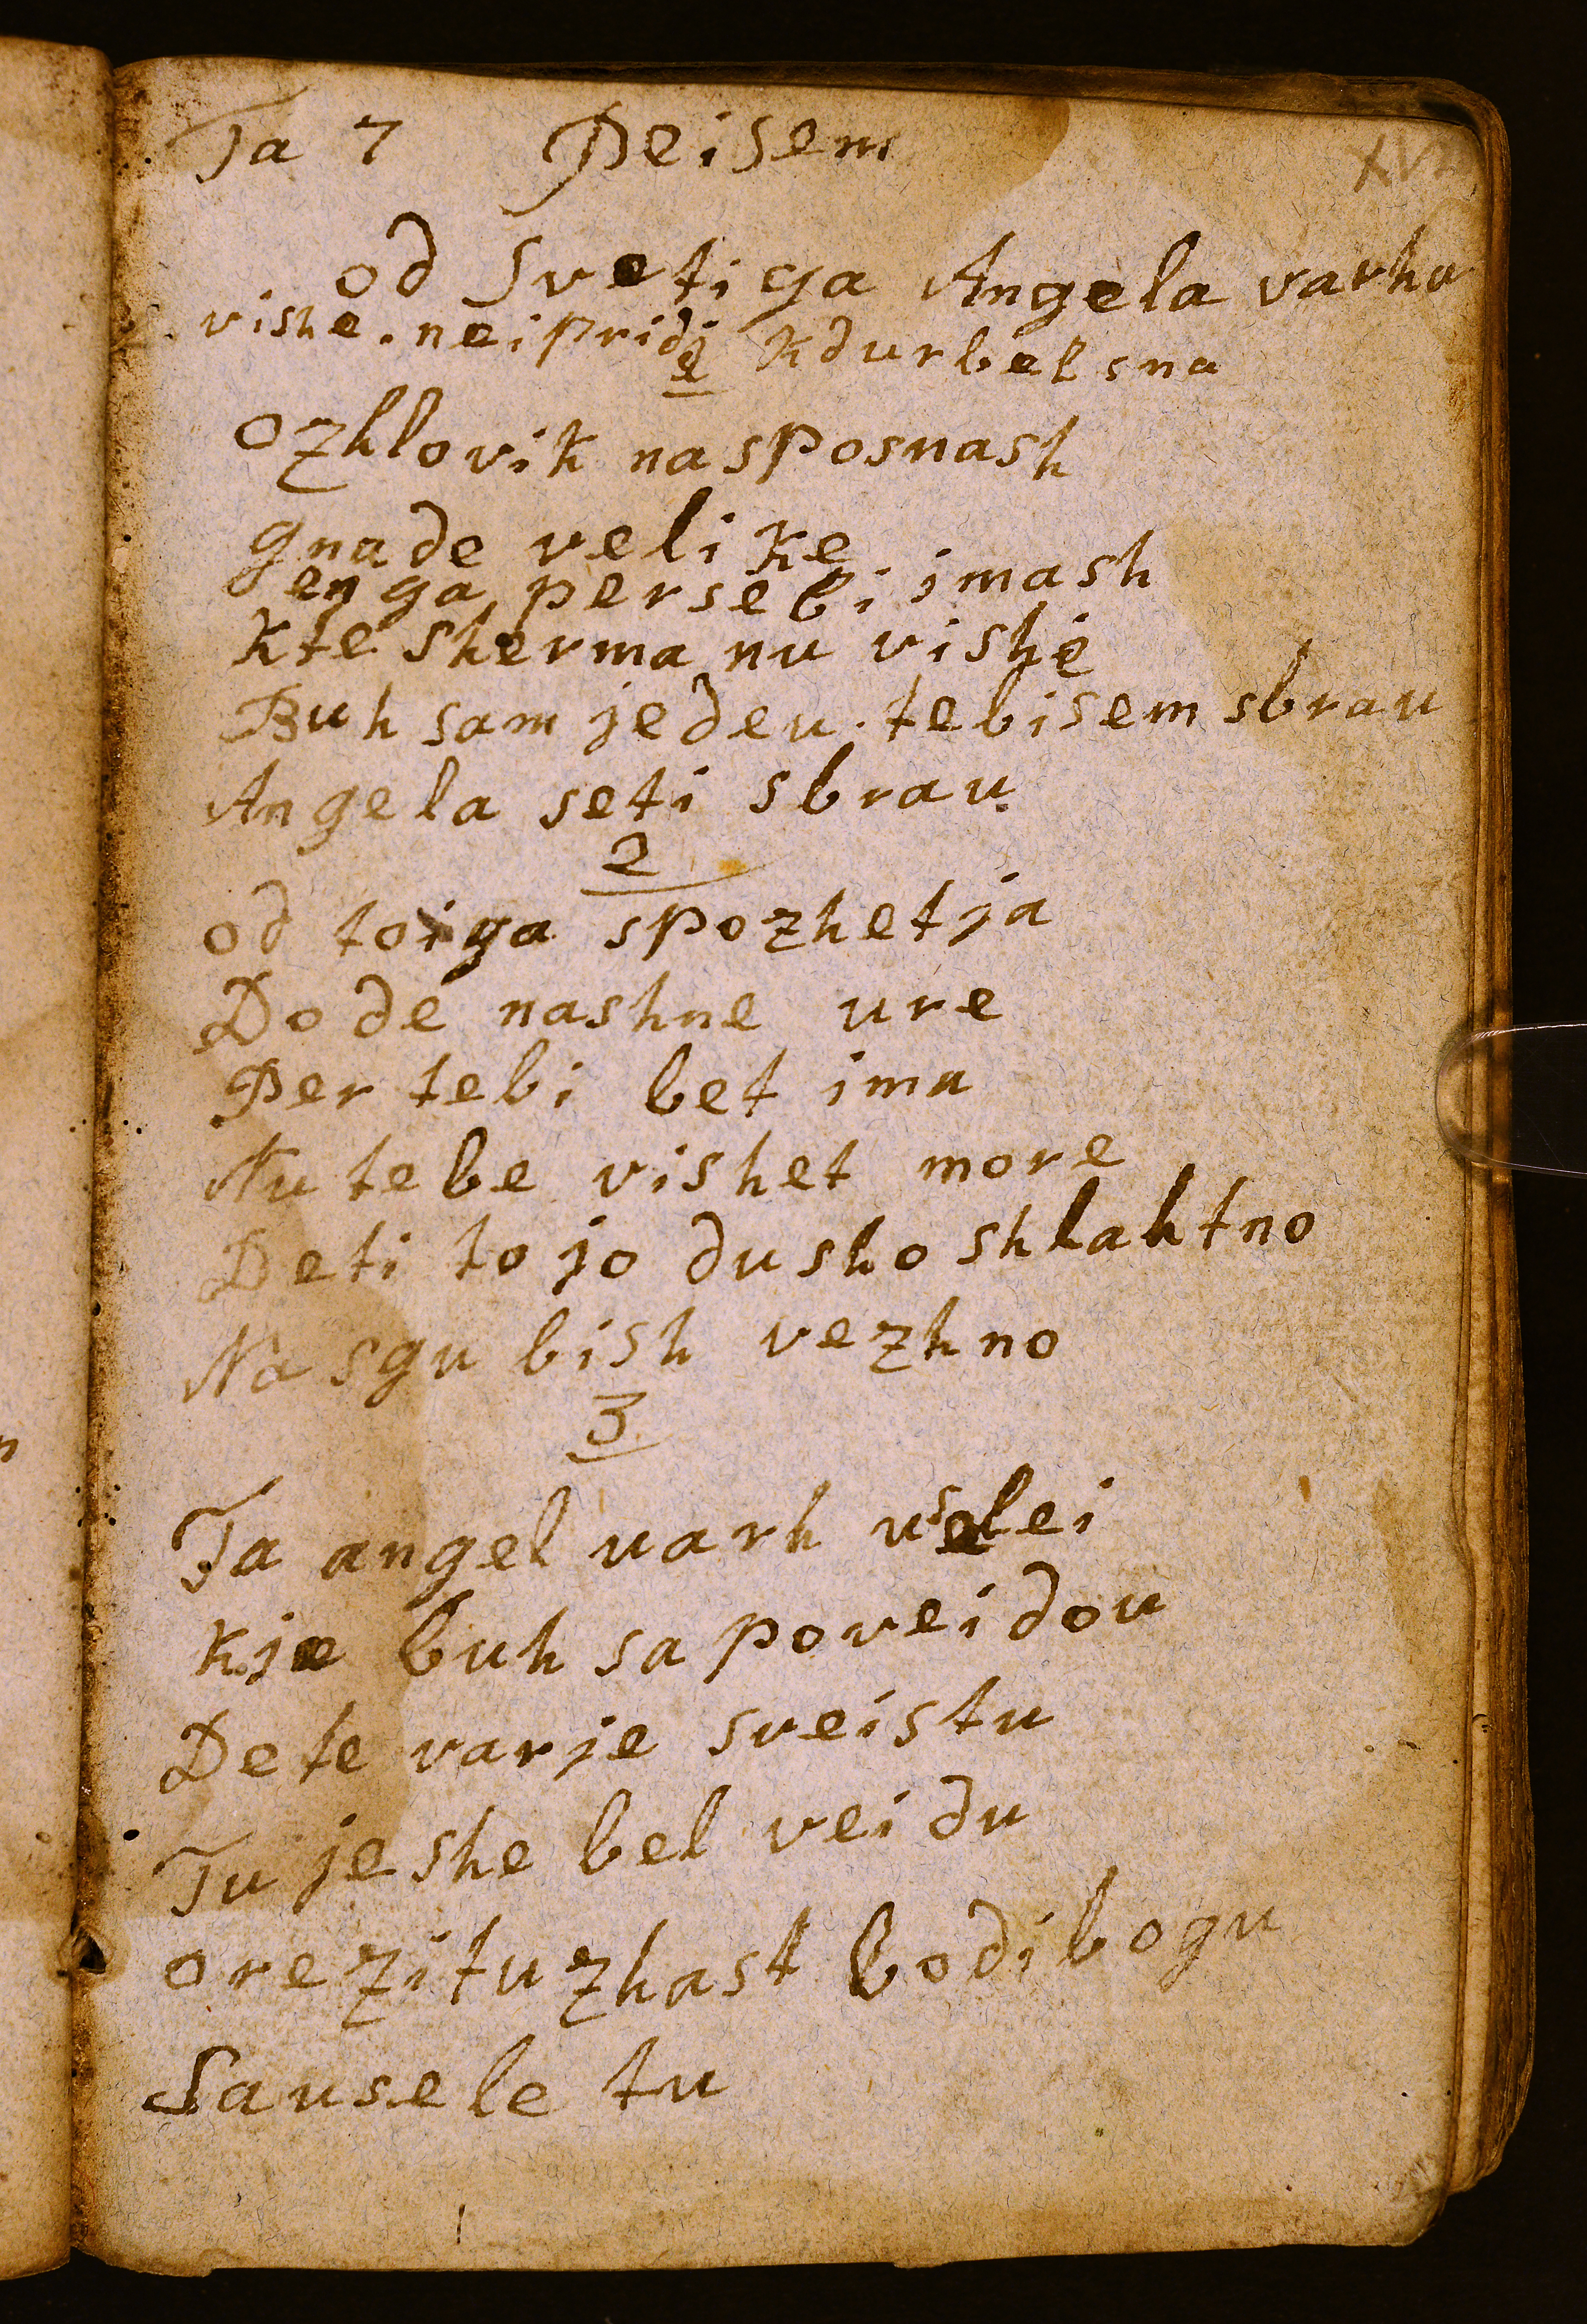 Ta 7 Peisem
XVII
od Svetiga Angela varhu
vishe. neipridi kdurbelsna
1
ozhlovik nasposnash
gnade velike
enga persebi imash
kte sherma nu vishe
Buh sam jedeu. tebisem sbrau
Angela seti sbrau
2
od toiga spozhetja
Dode nashne ure
Per tebi bet ima
Nu tebe vishet more
Deti to jo dusho shlahtno
Na sgu bish vezhno
3
Ta angel varh uselei
kje buh sa poveidou
De te varje sveistu
Tu je she bel veidu
orezituzhast bodibogu
Sausele tu